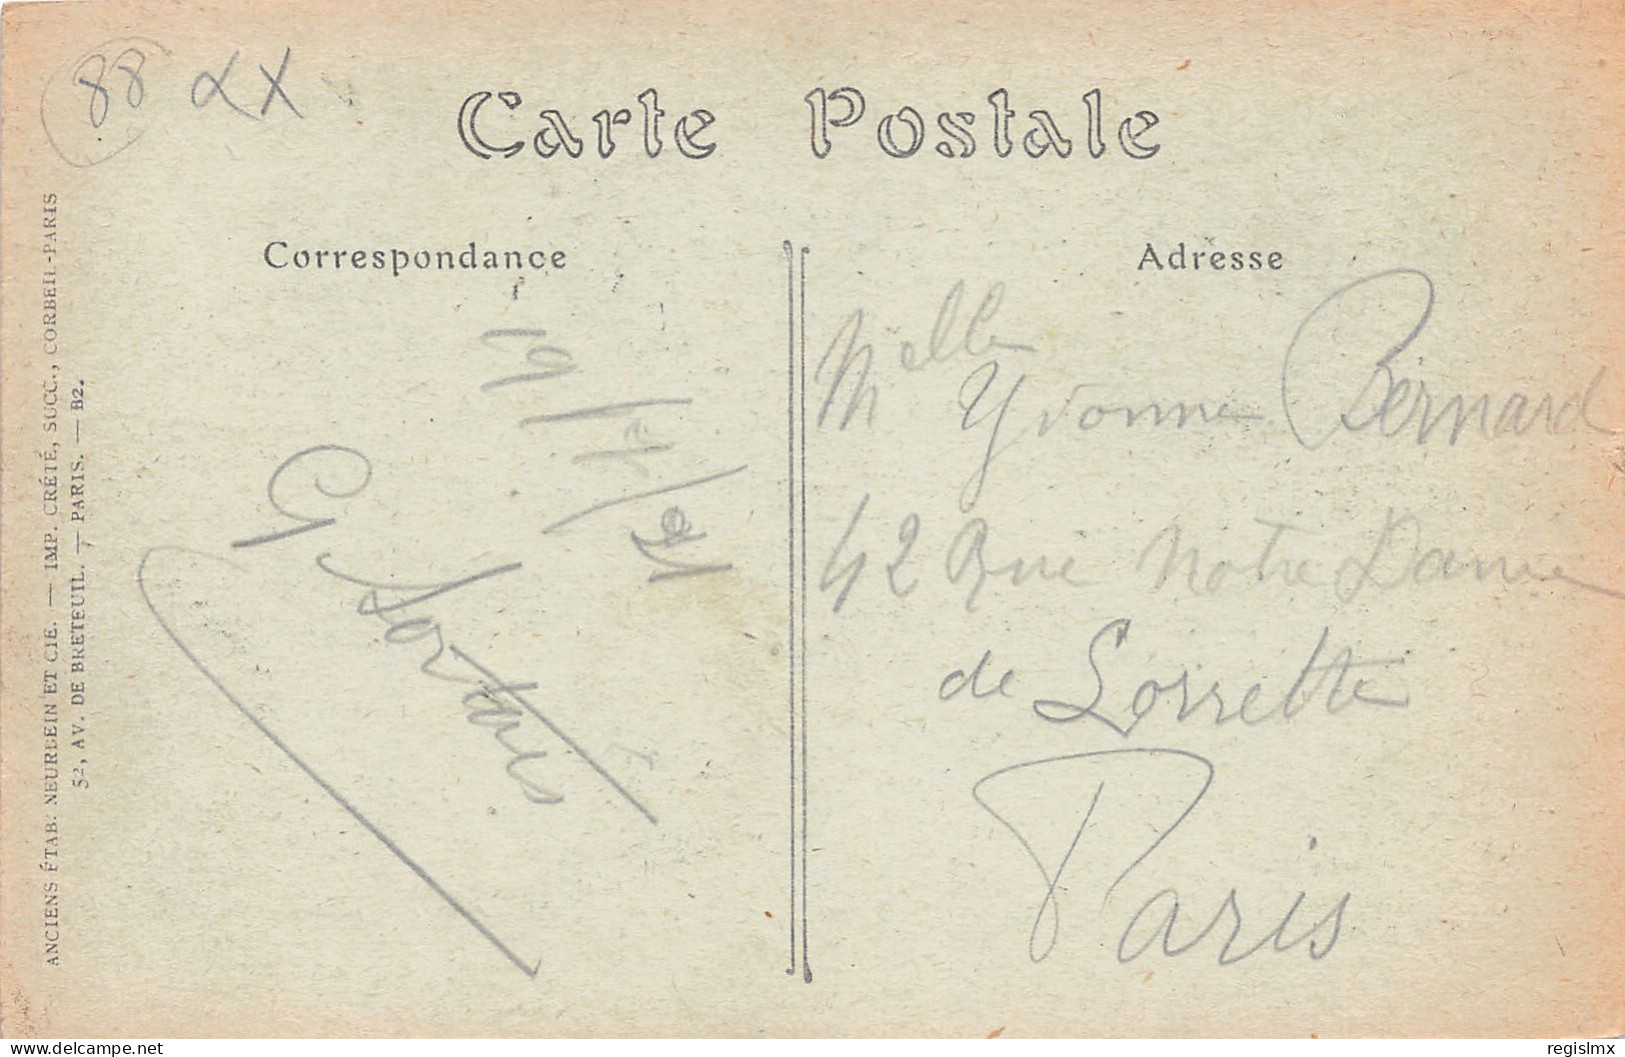 88 αX
Carte Postale
Correspondance
Adresse
ANCIENS ÉTAB. NEURDEIN ET CIE. — IMP. CRÉTÉ, SUCC., CORBEIL-PARIS
52, AV. DE BRETEUIL. — PARIS. — B2.
19/7/21
G Sortais
Melle Yvonne Bernard
42 Rue Notre Dame
de Lorrette
Paris
Delcampe.net
regislmx